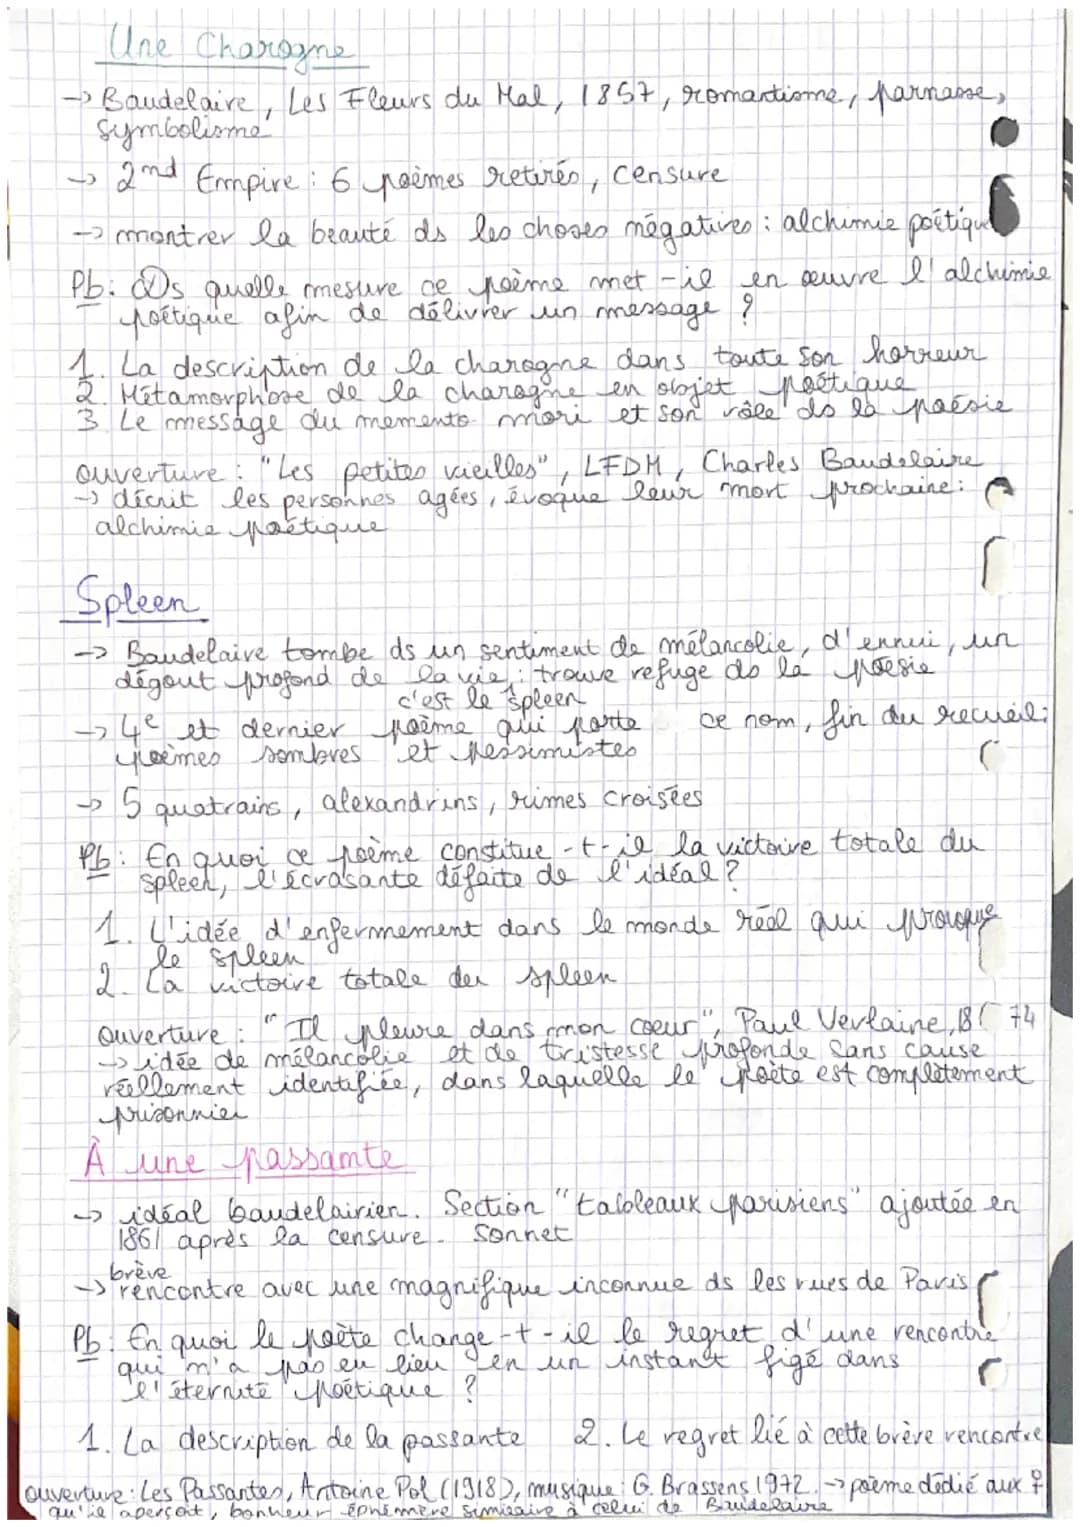 Une Charogne
-> Baudelaire, Les Fleurs du Mal, 1857, romantisme, parnasse,
symbolisme
-> 2nd Empire : 6 poèmes retirés, censure
-> montrer la beauté ds les choses négatives : alchimie poétique
Pb : Ds quelle mesure ce poème met-il en œuvre l'alchimie
poétique afin de délivrer un message ?
1. La description de la charogne dans toute son horreur
2. Métamorphose de la charogne en objet poétique
3 Le message du memento mori et son rôle ds la poésie
ouverture : "Les petites vieilles", LFDM, Charles Baudelaire
-> décrit les personnes agées, évoque leur mort prochaine :
alchimie poétique
Spleen
-> Baudelaire tombe ds un sentiment de mélancolie, d'ennui, un
dégout profond de la vie : trouve refuge ds la poésie
c'est le spleen
-> 4e et dernier poème qui porte ce nom, fin du recueil :
poèmes sombres et pessimistes
-> 5 quatrains, alexandrins, rimes croisées
Pb : En quoi ce poème constitue-t-il la victoire totale du
spleen, l'écrasante défaite de l'idéal ?
1. L'idée d'enfermement dans le monde réel qui provoque
le spleen
2. La victoire totale du spleen
Ouverture : "Il pleure dans mon coeur", Paul Verlaine, 1874
-> idée de mélancolie et de tristesse profonde sans cause
réellement identifiée, dans laquelle le poète est complètement
prisonnier
À une passante
-> idéal baudelairien. Section "tableaux parisiens" ajoutée en
1861 après la censure. Sonnet
brève
-> rencontre avec une magnifique inconnue ds les rues de Paris
Pb : En quoi le poète change-t-il le regret d'une rencontre
qui n'a pas eu lieu en un instant figé dans
l'éternité poétique ?
1. La description de la passante 2. Le regret lié à cette brève rencontre
ouverture : Les Passantes, Antoine Pol (1918), musique : G. Brassens 1972. -> poème dédié aux ♀
qu'il aperçoit, bonheur éphémère similaire à celui de Baudelaire